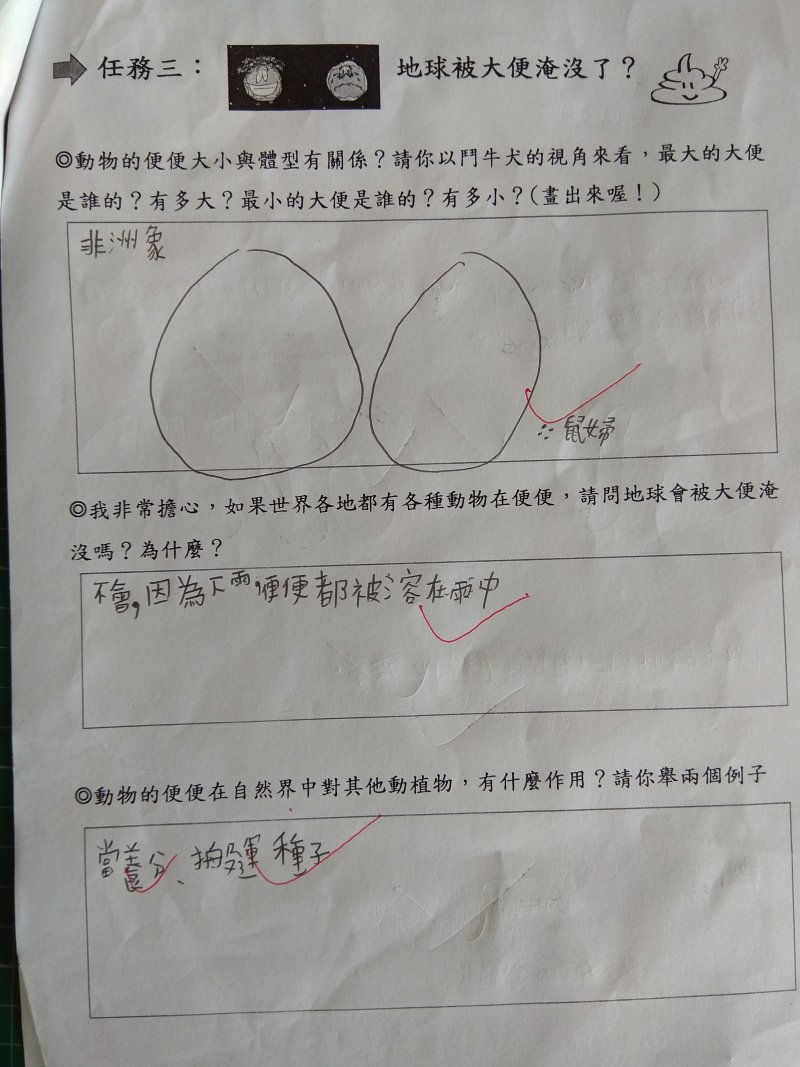 任務三： 地球被大便淹沒了？
◎動物的便便大小與體型有關係？請你以鬥牛犬的視角來看，最大的大便
是誰的？有多大？最小的大便是誰的？有多小？(畫出來喔！)
非洲象
鼠婦
◎我非常擔心，如果世界各地都有各種動物在便便，請問地球會被大便淹
沒嗎？為什麼？
不會,因為下雨,便便都被溶在雨中
◎動物的便便在自然界中對其他動植物，有什麼作用？請你舉兩個例子
當養分、運種子